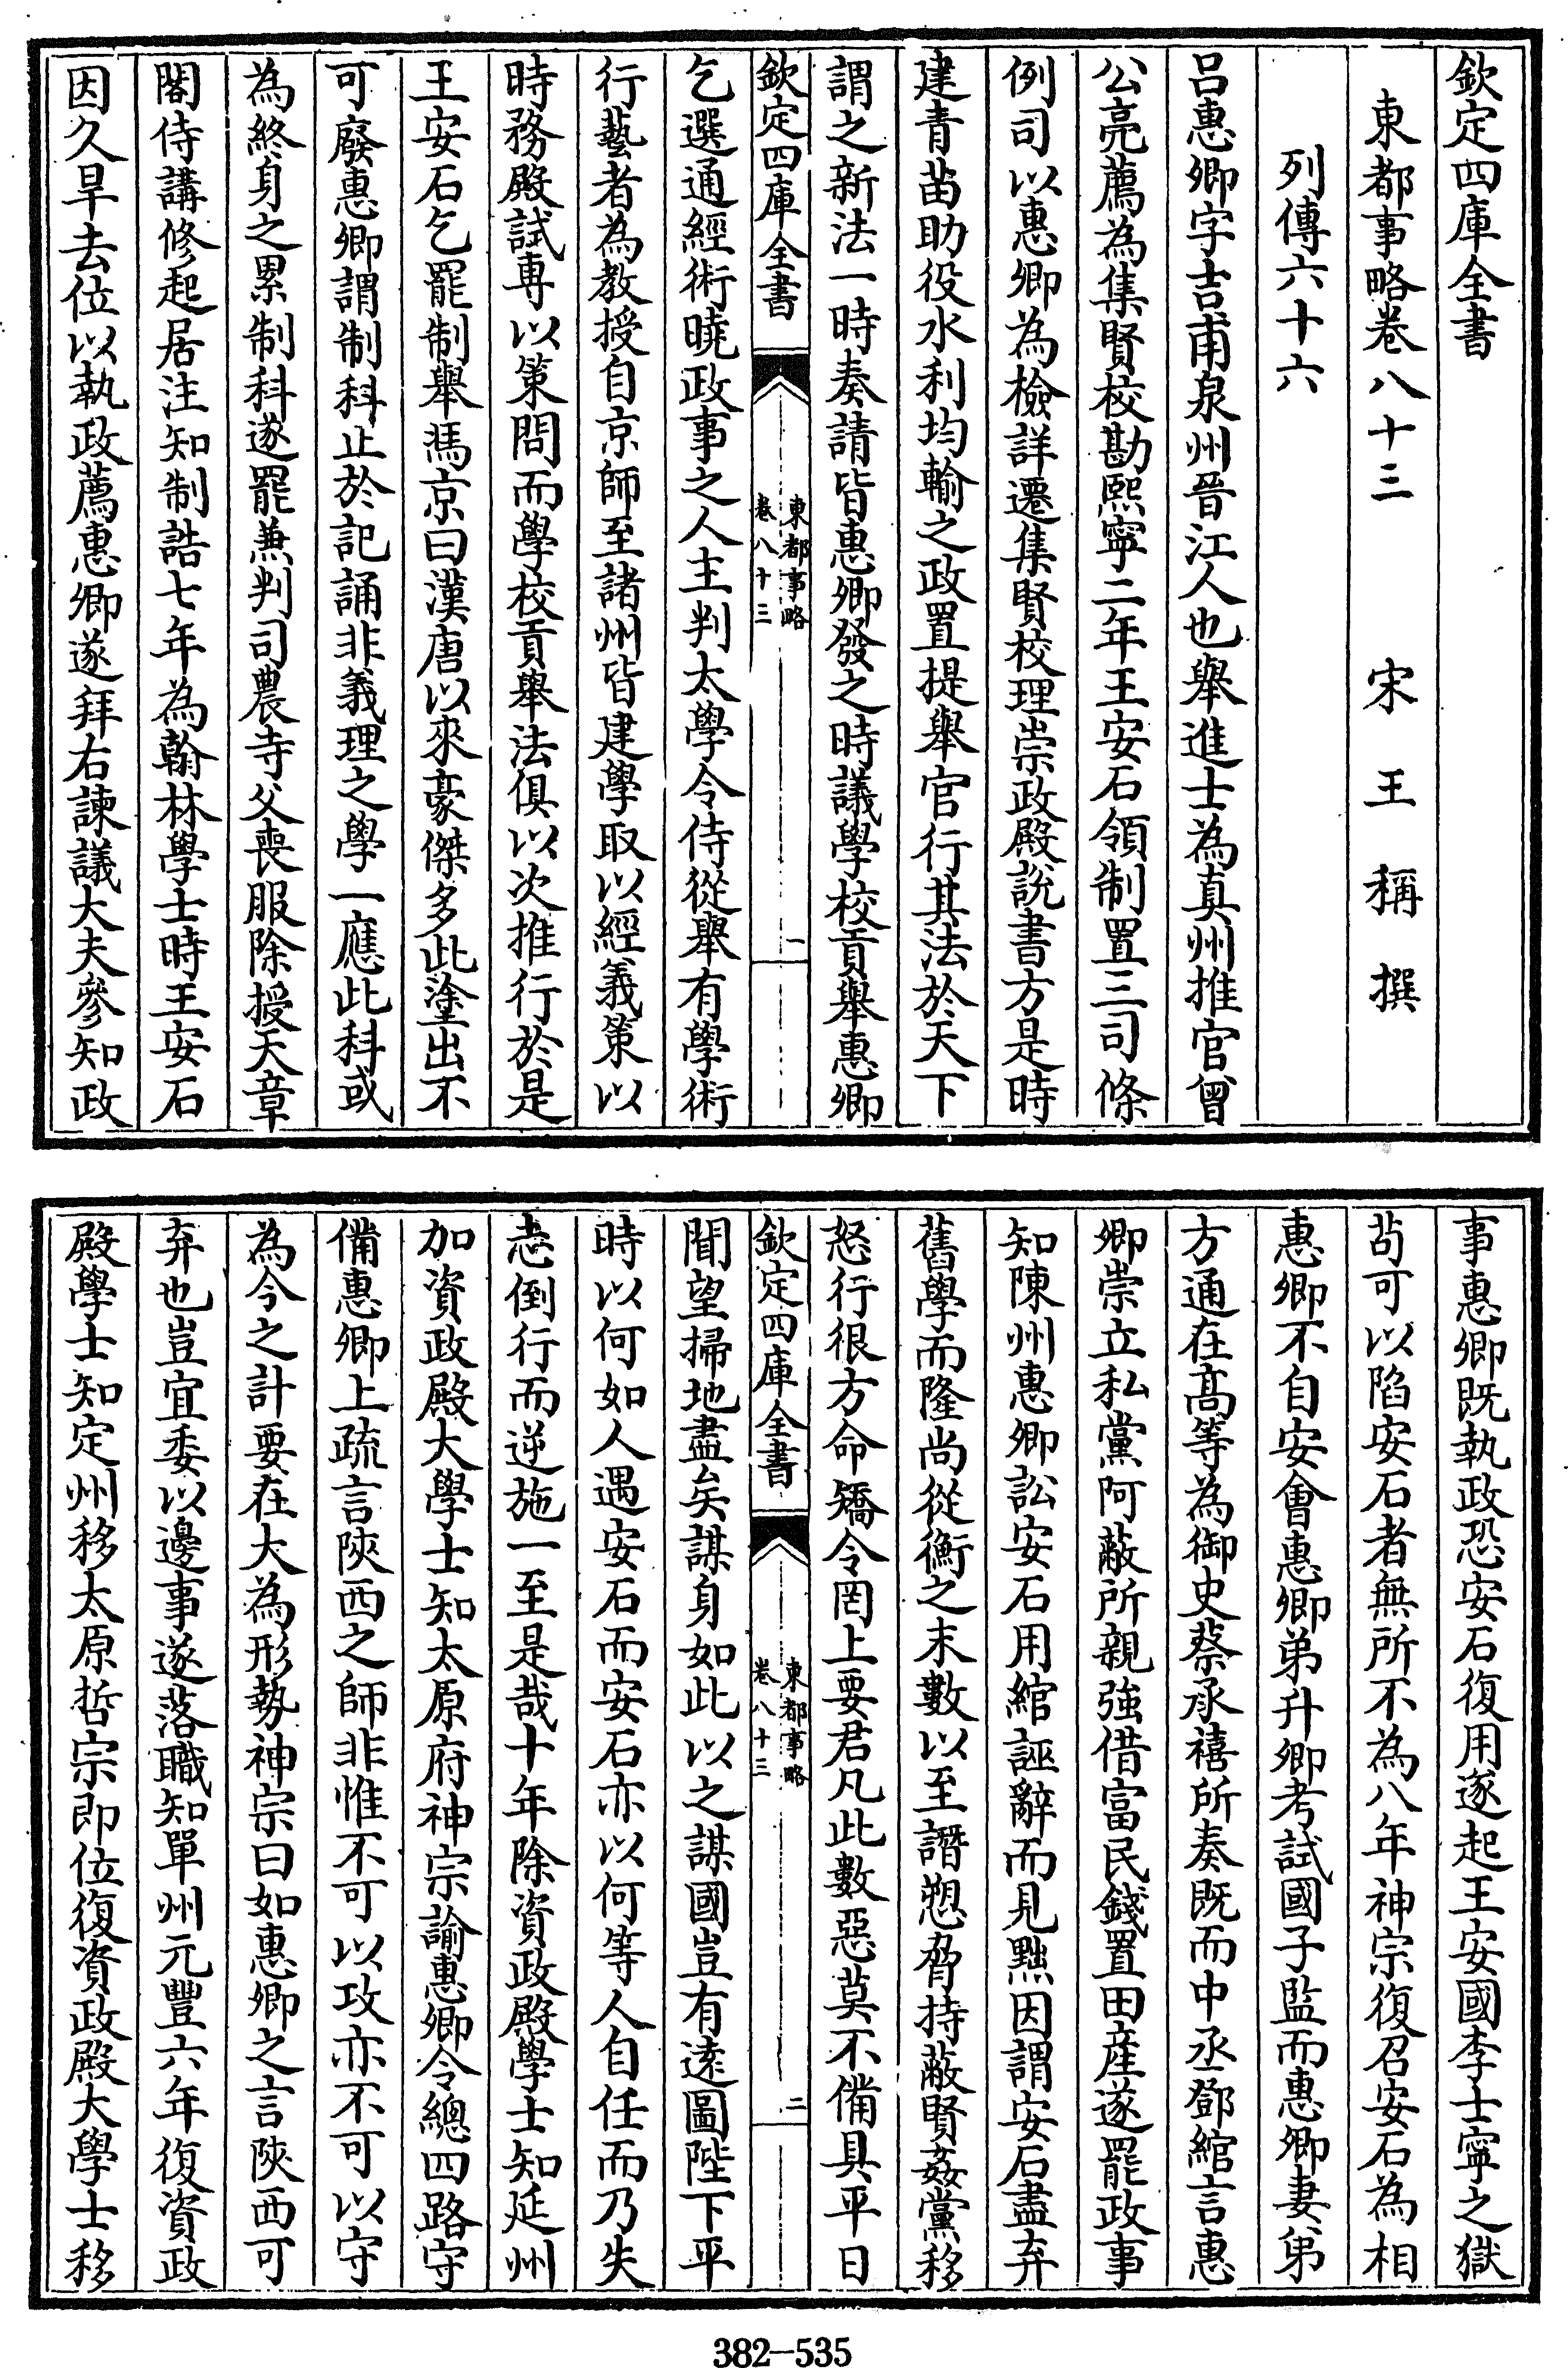 欽定四庫全書
東都事略卷八十三　宋　王　稱　撰
列傳六十六
呂惠卿字吉甫泉州晉江人也舉進士為真州推官曾
公亮薦為集賢校勘熙寧二年王安石領制置三司條
例司以惠卿為檢詳遷集賢校理崇政殿說書方是時
建青苗助役水利均輸之政置提舉官行其法於天下
謂之新法一時奏請皆惠卿發之時議學校貢舉惠卿
欽定四庫全書
東都事略
卷八十三
一
乞選通經術曉政事之人主判太學令侍從舉有學術
行藝者為教授自京師至諸州皆建學取以經義策以
時務殿試専以策問而學校貢舉法俱以次推行於是
王安石乞罷制舉馮京曰漢唐以來豪傑多此塗出不
可廢惠卿謂制科止於記誦非義理之學一應此科或
為終身之累制科遂罷兼判司農寺父喪服除授天章
閣侍講修起居注知制誥七年為翰林學士時王安石
因久旱去位以執政薦惠卿遂拜右諫議大夫參知政
事惠卿既執政恐安石復用遂起王安國李士寧之獄
苟可以陷安石者無所不為八年神宗復召安石為相
惠卿不自安會惠卿弟升卿考試國子監而惠卿妻弟
方通在高等為御史蔡承禧所奏既而中丞鄧綰言惠
卿崇立私黨阿蔽所親強借富民錢置田產遂罷政事
知陳州惠卿訟安石用綰誣辭而見黜因謂安石盡弃
舊學而隆尚從衡之末數以至譖愬脅持蔽賢姦黨移
怒行很方命矯令罔上要君凡此數惡莫不備具平日
欽定四庫全書
東都事略
卷八十三
二
聞望掃地盡矣謀身如此以之謀國豈有遠圖陛下平
時以何如人遇安石而安石亦以何等人自任而乃失
志倒行而逆施一至是哉十年除資政殿學士知延州
加資政殿大學士知太原府神宗諭惠卿令總四路守
備惠卿上疏言陝西之師非惟不可以攻亦不可以守
為今之計要在大為形勢神宗曰如惠卿之言陝西可
弃也豈宜委以邊事遂落職知單州元豐六年復資政
殿學士知定州移太原哲宗即位復資政殿大學士移
382—535